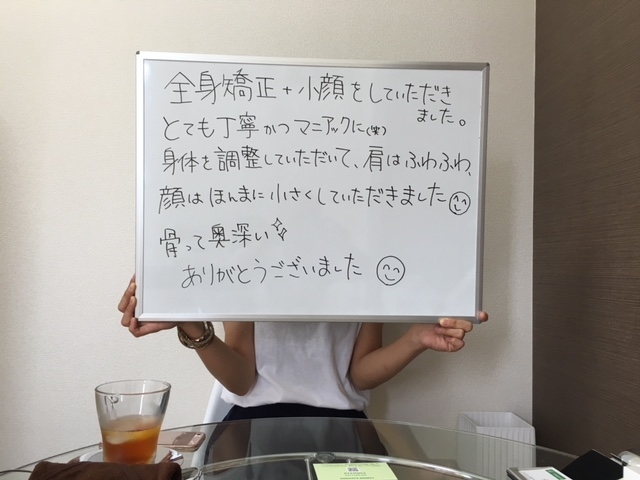 全身矯正+小顔をしていただき
ました。
とても丁寧かつマニアックに(笑)
身体を調整していただいて、肩はふわふわ、
顔はほんまに小さくしていただきました
骨って奥深い
ありがとうございました